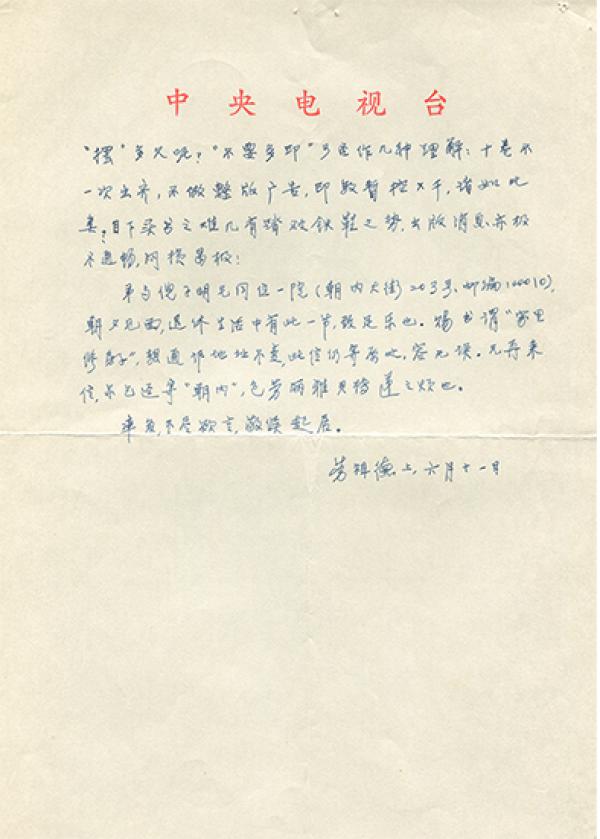 中央电视台
"摆"多久呢?"不要多印"可还作几种理解:十卷不
一次出齐,不做整版广告,印数暂控X千,诸如此
类。目下买书之难几有踏破铁鞋之势,出版消息亦极
不通畅,闭损易极!
弟与傻子明 同住一院(朝内大街203号,邮编100010),
朝夕见面,退休生活中有此一节,致足乐也。赐书谓"家里
修房子",想通邮地址不变,此信仍寄原处,容无误。兄再来
信,示已迳寄"朝内",免劳丽雅贝转递之烦也。
率复,不尽欲言,敬颂起居。
劳祖德上,六月十一日